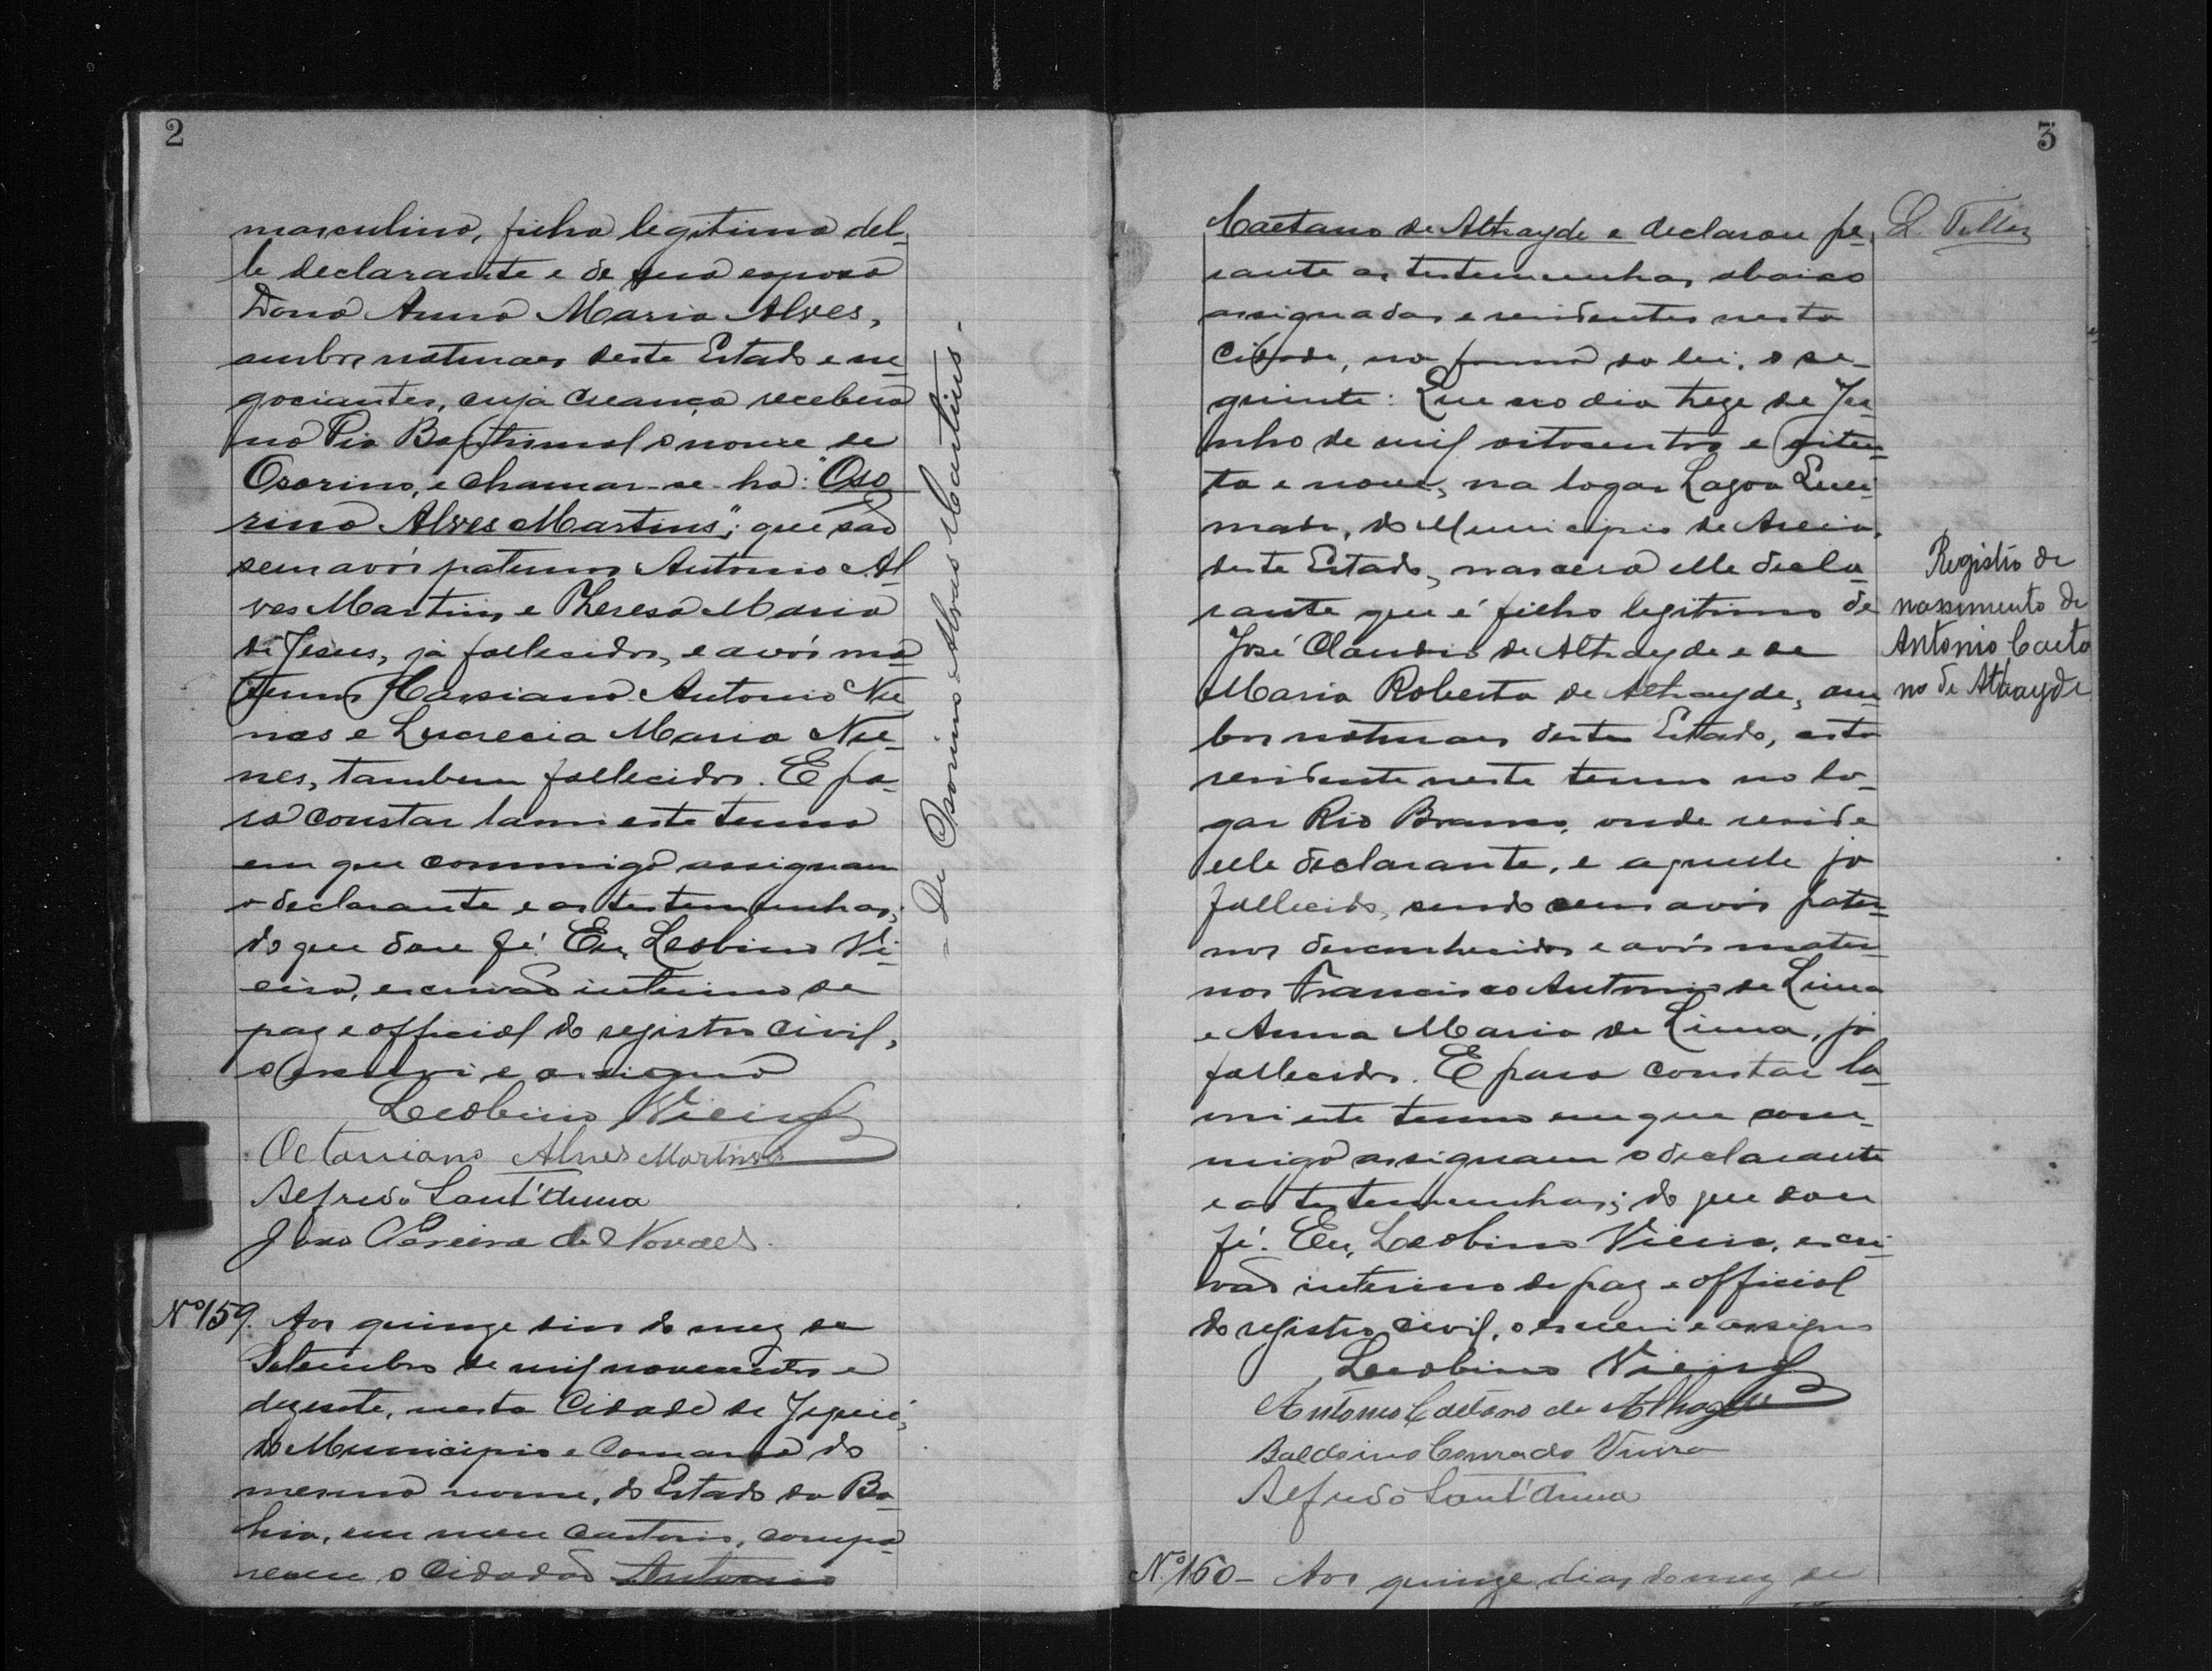 2
masculino, filho legitimo del-
le declarante e de sua esposa
Dona Anna Maria Alves,
ambos naturaes deste Estado e ne-
gociantes, cuja creança receberá
na Pia Baptismal o nome de
Osorino, e chamar-se-ha: "Oso
rino Alves Martins"; que são
seus avós paternos Antonio Al
ves Martins e Thereza Maria
de Jesus, já fallecidos, e avós ma
ternos Antonio Nu
nes e Lucrecia Maria Nu-
nes, tambem fallecidos. E pa-
ra constar lavrei este termo
em que commigo assignam
o declarante e as testemunhas,
do que dou fé. Eu, Leobino Vi-
eira, escrivão interino de
paz e official do registro civil,
o escrevi e assigno
Leobino Vieira
Octaviano Alves Martins
Alfredo Sant'Anna
João Pereira de Novaes.
- De Osorino Alves Martins -
Nº 159. Aos quinze dias do mez de
Setembro de mil novecentos e
dezesete, nesta Cidade de Jequié,
do Municipio e Comarca do
mesmo nome, do Estado da Ba-
hia, em meu cartorio, compa-
receu o Cidadão Antonio
3
Caetano de Athayde e declarou pe-
rante as testemunhas abaixo
assignadas e residentes nesta
Cidade, na forma da lei, o se-
guinte: Que no dia treze de Ju-
nho de mil oitocentos e oiten-
ta e nove, na logar Lagoa Quei-
mada, do Municipio de Areia,
deste Estado, nascera elle decla-
rante que é filho legitimo de
José Claudio de Athayde e de
Maria Roberta de Athayde, am-
bos naturaes deste Estado, esta
residente neste termo no lo-
gar Rio Branco, onde reside
elle declarante, e aquelle já
fallecido, sendo seus avós pater-
nos desconhecidos e avós mater-
nos Francisco Antonio de Lima
e Anna Maria de Lima, já
fallecidos. E para constar la-
vrei este termo em que com-
migo assignam o declarante
e as testemunhas; do que dou
fé. Eu, Leobino Vieira, escri-
vão interino de paz e official
do registro civil, o escrevi e assigno
Leobino Vieira
Antonio Caetano de Athayde
Baldoino Conrado Vieira
Alfredo Sant'Anna
Registro de
nascimento de
Antonio Caeta
no de Athayde
Nº 160- Aos quinze dias do mez de